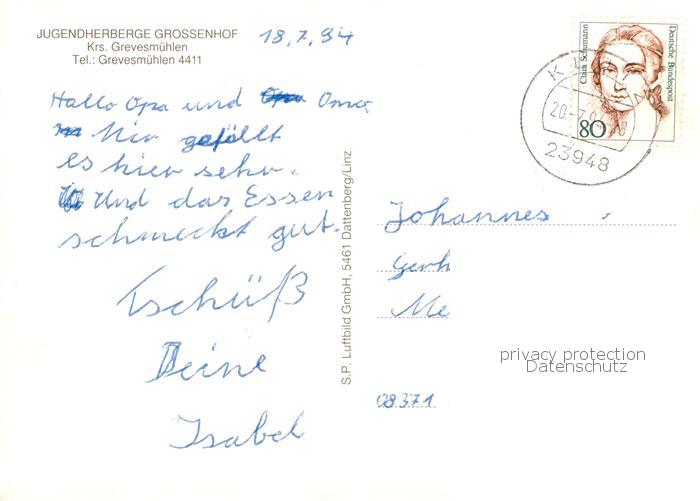 JUGENDHERBERGE GROSSENHOF
Krs. Grevesmühlen
Tel.: Grevesmühlen 4411
18.7.94
Hallo Opa und Oma
Mir gefällt
es hier sehr.
Und das Essen
schmeckt gut.
Tschüß
Deine
Isabel
S.P. Luftbild GmbH, 5461 Dattenberg/Linz
Clara Schumann
Deutsche Bundespost
80
23948
Johannes
Gerh
Me
08371
privacy protection
Datenschutz